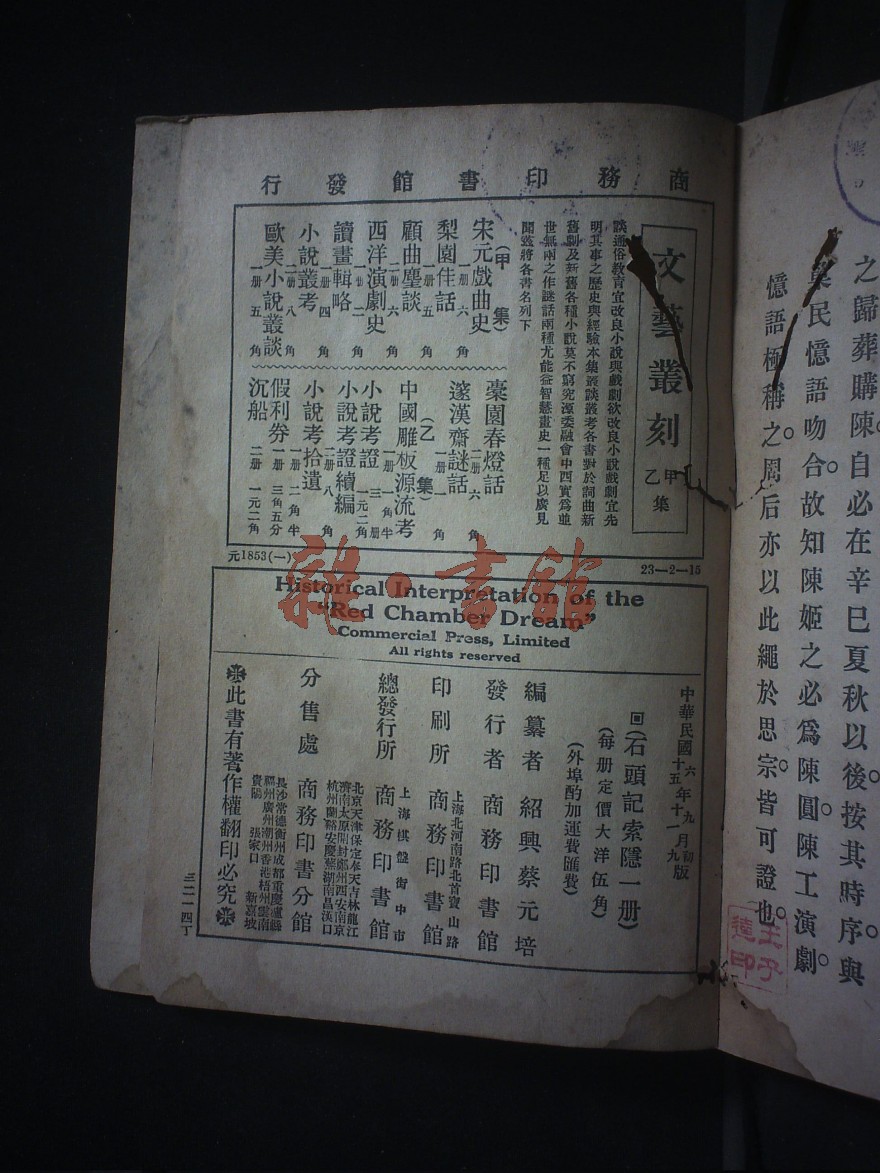 之歸葬購陳。自必在辛巳夏秋以後按其時序。與
民憶語吻合。故知陳姬之必為陳圓。陳工演劇。
憶語極稱之。周后亦以此繩於思宗。皆可證也。
商務印書館發行
文藝叢刻 甲乙集
談通俗教育宜改良小說與戲劇欲改良小說戲劇宜先
明其事之歷史與經驗本集叢談叢考各書對於詞曲新
舊劇及新舊各種小說莫不窮究源委融會中西實為並
世無兩之作謎話兩種尤能益智慧畫史一種足以廣見
聞茲將各書名列下
(甲集)
宋元戲曲史 一册 六角
梨園佳話 一册 五角
顧曲麈談 二册 六角
西洋演劇史 一册 二角
讀畫輯略 一册 四角
小說叢考 二册 八角
歐美小說叢談 一册 五角
橐園春燈話 二册 六角
邃漢齋謎話 一册 一角
(乙集)
中國雕板源流考 一册 一角半
小說考證 三册 一元二角
小說考證續編 二册 八角
小說考拾遺 一册 二角半
假利券 一册 三角五分
沉船 二册 一元二角
元1853(一)
23—2—15
雜·書館
Historical Interpretation of the
"Red Chamber Dream"
Commercial Press, Limited
All rights reserved
中華民國六年九月初版
十五年十一月九版
回(石頭記索隱一册)
(每册定價大洋伍角)
(外埠酌加運費匯費)
編纂者 紹興蔡元培
發行者 商務印書館
上海北河南路北首寶山路
印刷所 商務印書館
上海棋盤街中市
總發行所 商務印書館
北京天津保定奉天吉林龍江
濟南太原開封鄭州西安南京
杭州蘭谿安慶蕪湖南昌漢口
分售處 商務印書分館
長沙常德衡州成都重慶瀘縣
福州廣州潮州香港梧州雲南
貴陽 張家口 新嘉坡
※此書有著作權翻印必究※
三二一四丁